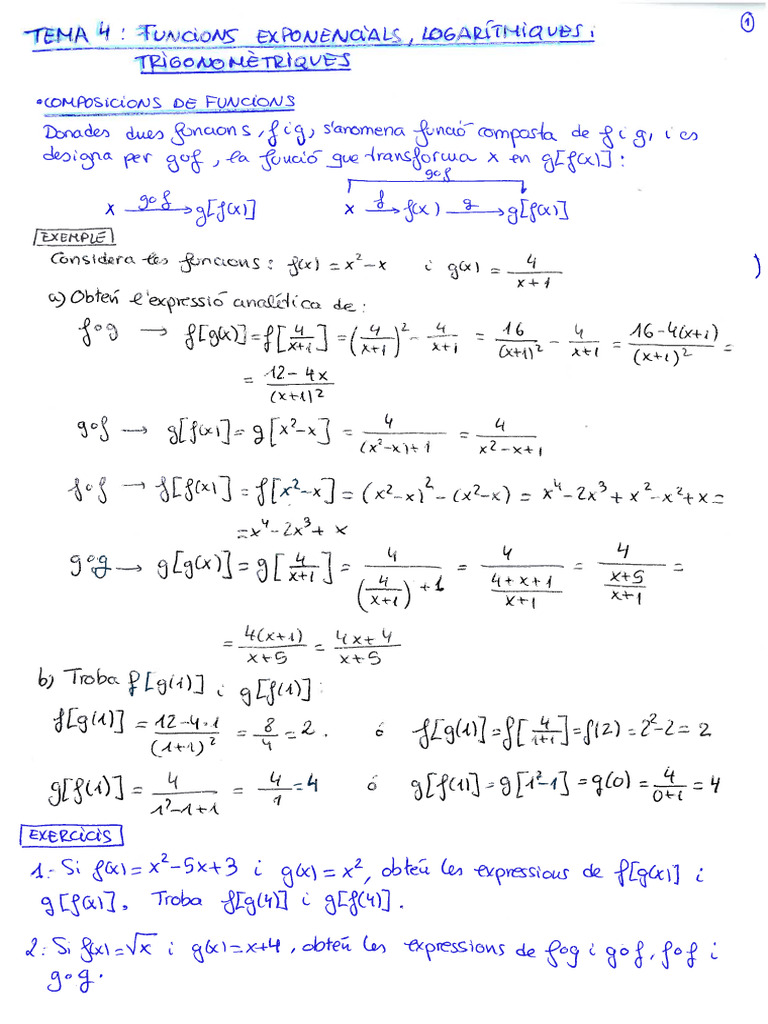 1
TEMA 4: FUNCIONS EXPONENCIALS, LOGARÍTMIQUES i
TRIGONOMÈTRIQUES
•COMPOSICIONS DE FUNCIONS
Donades dues funcions, f i g, s'anomena funció composta de f i g, i es
designa per g∘f, la funció que transforma x en g[f(x)]:
g∘f
x —g∘f→ g[f(x)] x —f→ f(x) —g→ g[f(x)]
EXEMPLE
Considera les funcions: f(x) = x² - x i g(x) = 4/(x+1)
a) Obtén l'expressió analítica de:
f∘g → f[g(x)] = f[4/(x+1)] = (4/(x+1))² - 4/(x+1) = 16/(x+1)² - 4/(x+1) = (16-4(x+1))/(x+1)² =
= (12-4x)/(x+1)²
g∘f → g[f(x)] = g[x²-x] = 4/((x²-x)+1) = 4/(x²-x+1)
f∘f → f[f(x)] = f[x²-x] = (x²-x)² - (x²-x) = x⁴ - 2x³ + x² - x² + x =
= x⁴ - 2x³ + x
g∘g → g[g(x)] = g[4/(x+1)] = 4/((4/(x+1))+1) = 4/((4+x+1)/(x+1)) = 4/((x+5)/(x+1)) =
= 4(x+1)/(x+5) = (4x+4)/(x+5)
b) Troba f[g(1)] i g[f(1)]:
f[g(1)] = (12-4·1)/(1+1)² = 8/4 = 2. ó f[g(1)] = f[4/(1+1)] = f(2) = 2²-2 = 2
g[f(1)] = 4/(1²-1+1) = 4/1 = 4 ó g[f(1)] = g[1²-1] = g(0) = 4/(0+1) = 4
EXERCICIS
1.- Si f(x) = x²-5x+3 i g(x) = x², obtén les expressions de f[g(x)] i
g[f(x)]. Troba f[g(4)] i g[f(4)].
2.- Si f(x) = √x i g(x) = x+4, obtén les expressions de f∘g i g∘f, f∘f i
g∘g.